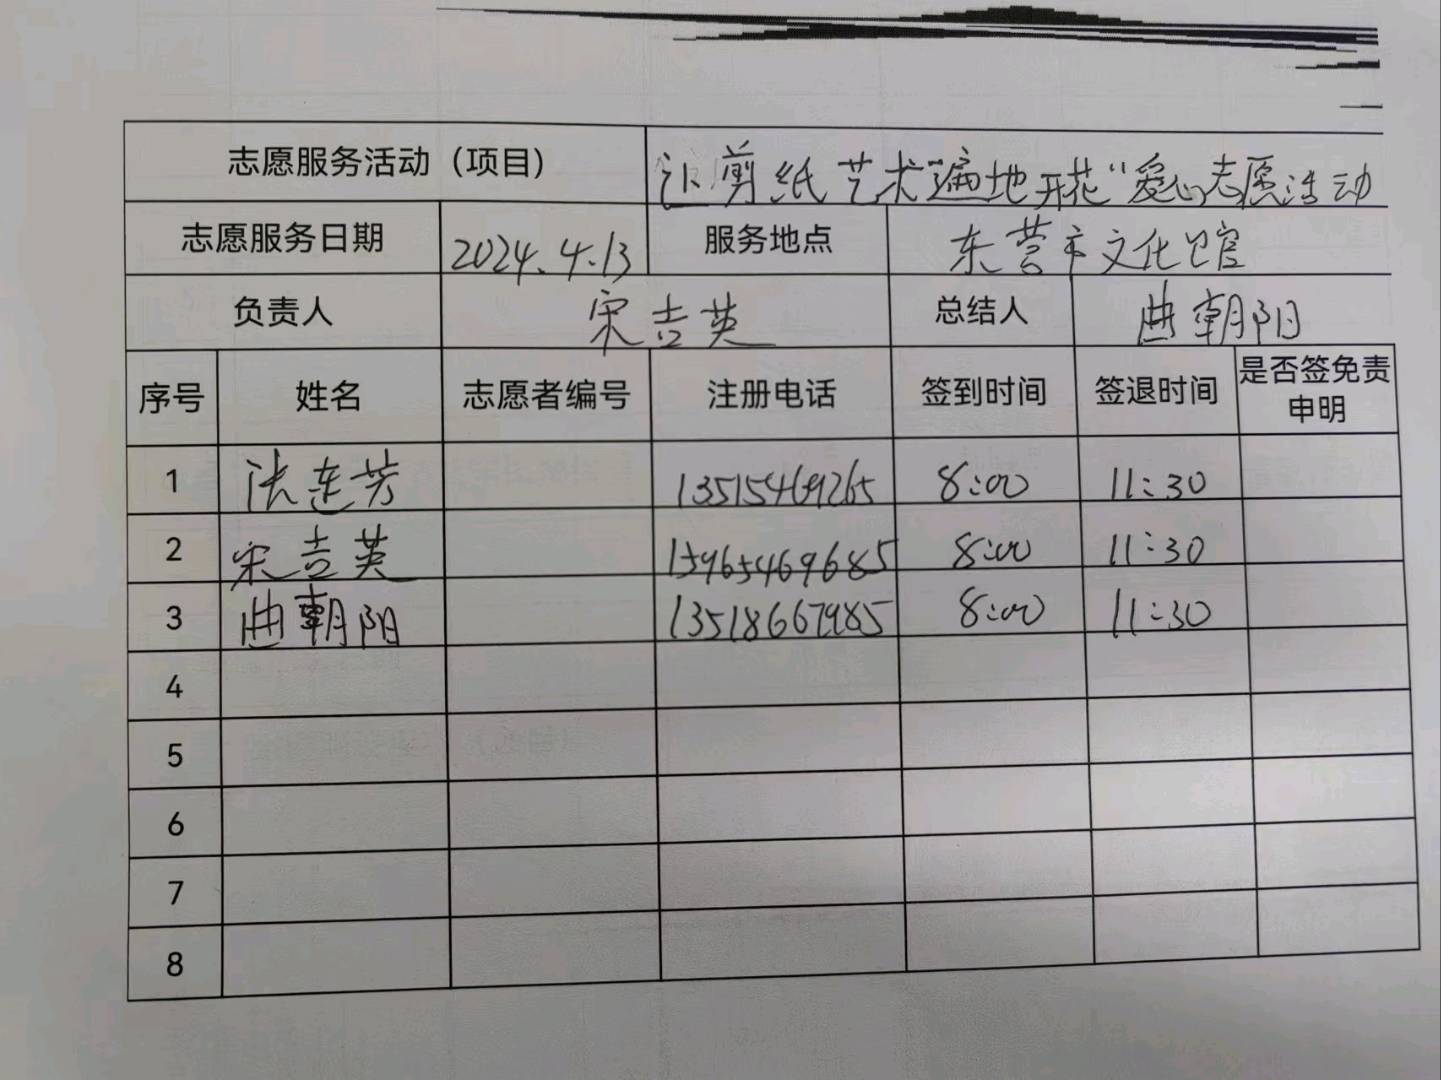 志愿服务活动（项目） 让剪纸艺术"遍地开花"爱心志愿活动
志愿服务日期 2024.4.13 服务地点 东营市文化馆
负责人 宋吉英 总结人 曲朝阳
序号 姓名 志愿者编号 注册电话 签到时间 签退时间 是否签免责申明
1 法莲芳 13515469265 8:00 11:30
2 宋吉英 15965469685 8:00 11:30
3 曲朝阳 13518667985 8:00 11:30
4
5
6
7
8